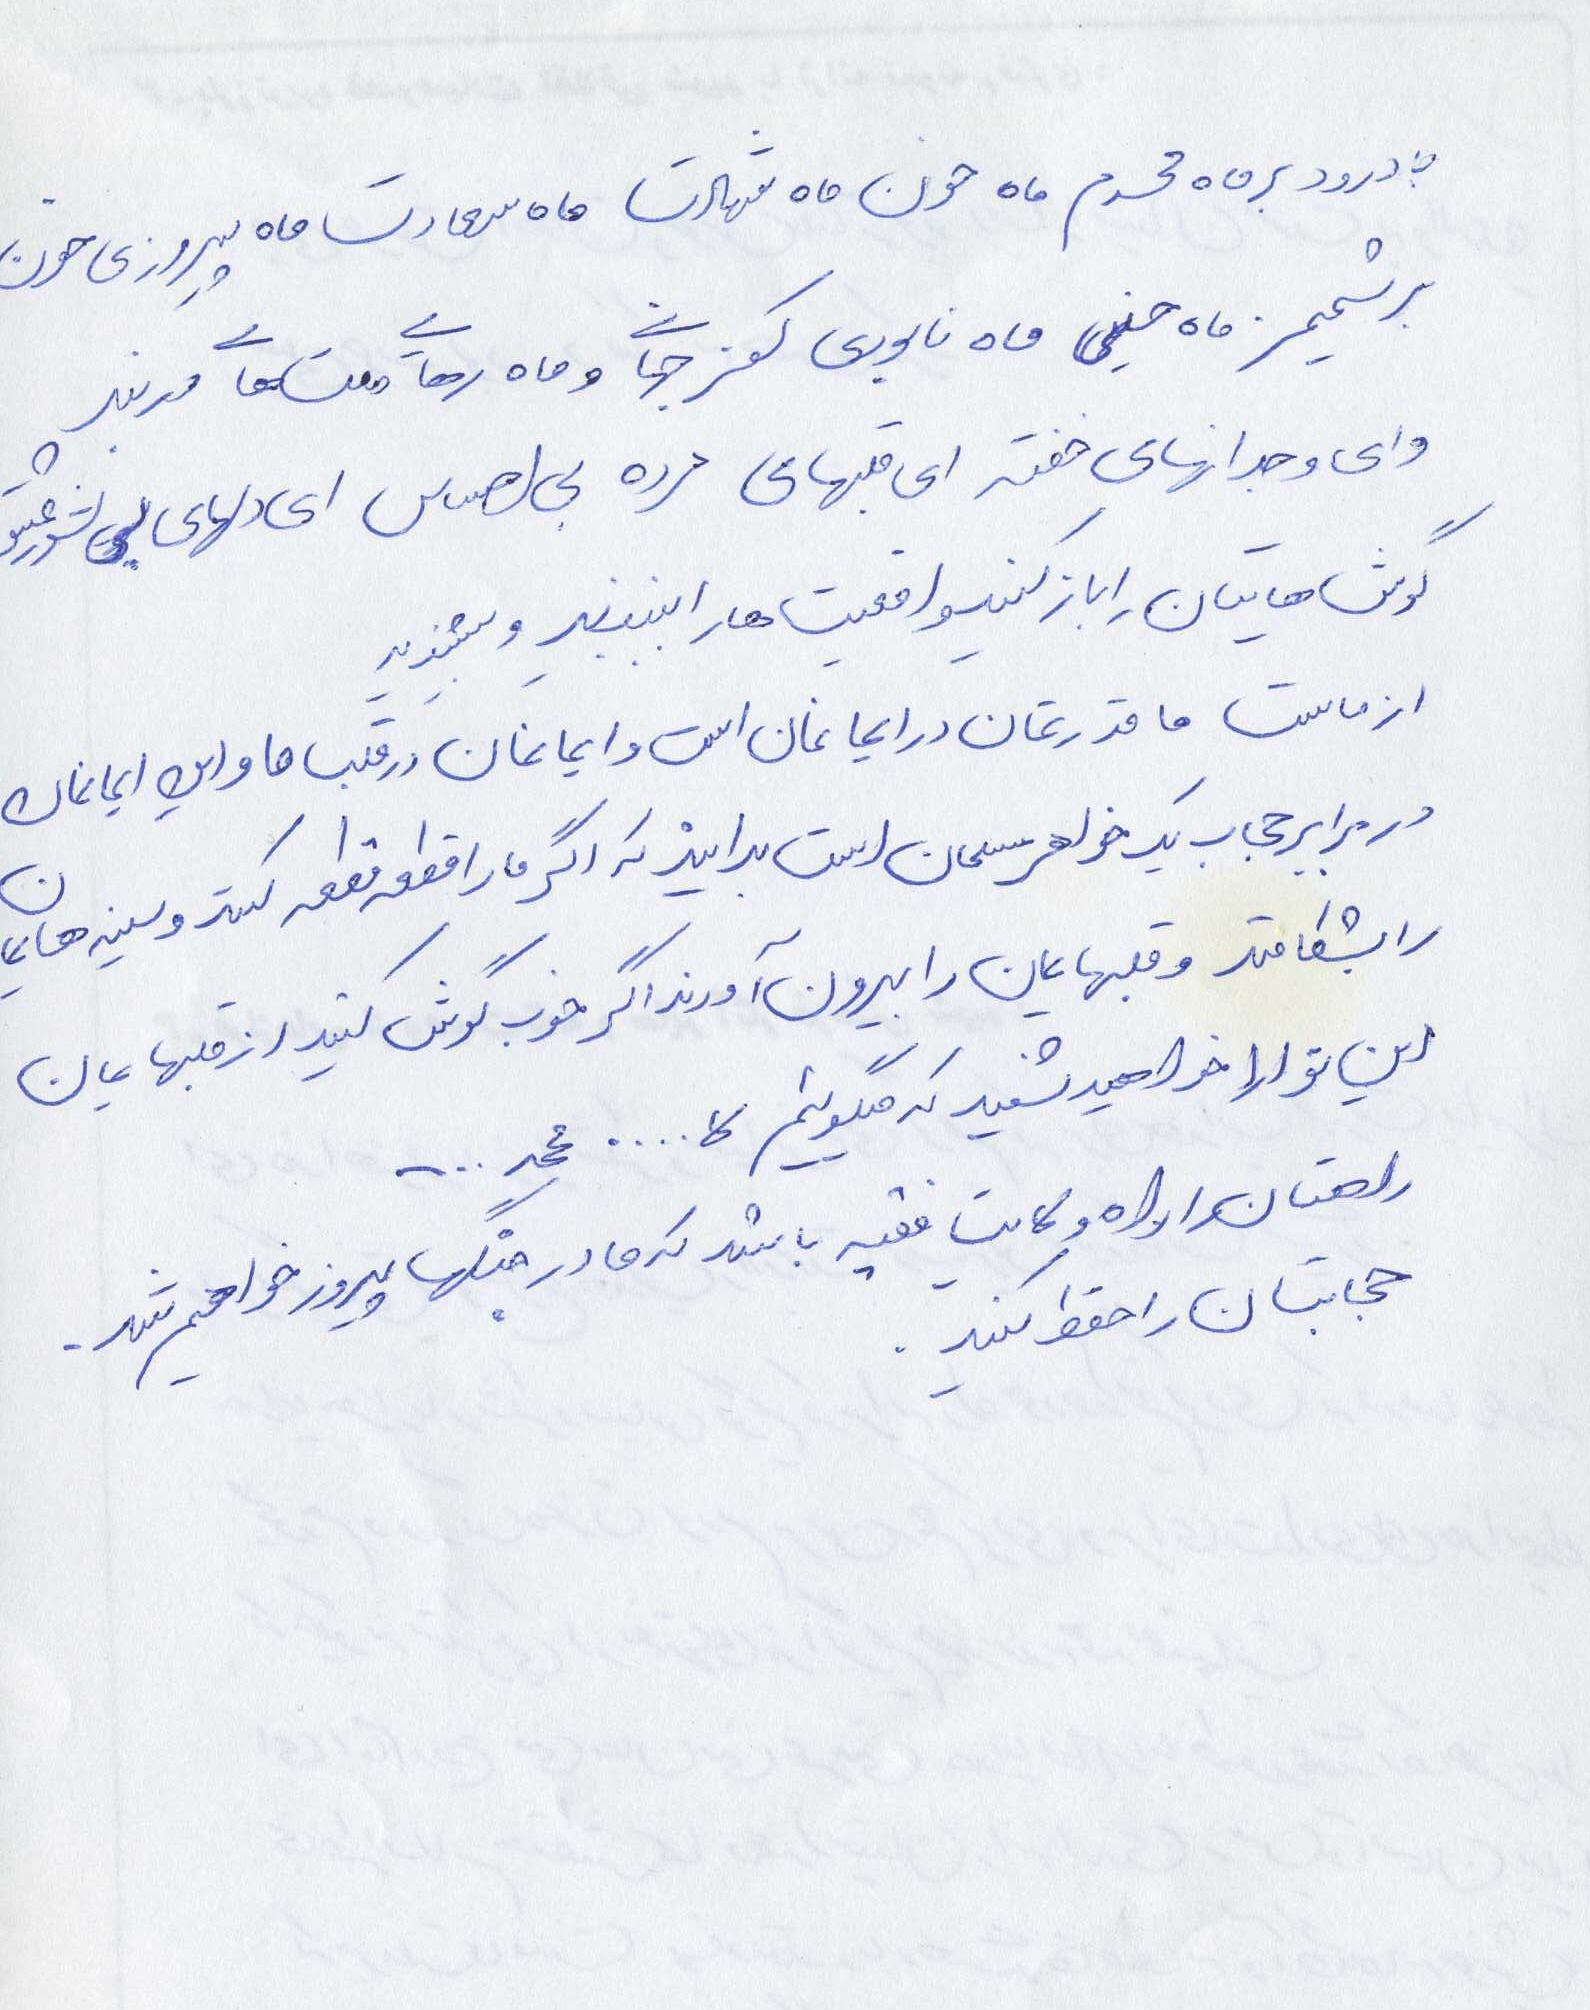 با درود بر ماه محرم ماه خون ماه شهادت ماه سعادت ماه پیروزی خون
بر شمشیر ماه خمینی ماه نابودی کفر جهانی و ماه رهایی ملت‌های دربند
وای وجدانهای خفته ای قلبهای مرده بی احساس ای دلهای بی شور
گوش‌هایتان را باز کنید واقعیت‌ها را ببینید و بشنوید
از ماست ما قدرتمان در ایمانمان است و ایمانمان در قلب ما و این ایمانمان
در برابر حجاب یک خواهر مسلمان است بدانید که اگر ما را قطعه قطعه کنند و سینه‌هایمان
را بشکافند و قلبهایمان را بیرون آورند اگر خوب گوش کنید از قلبهایمان
این نوا را خواهید شنید که میگوئیم
راهتان راه ولایت فقیه باشد که ما در جنگها پیروز خواهیم شد.
حجابتان را حفظ کنید.